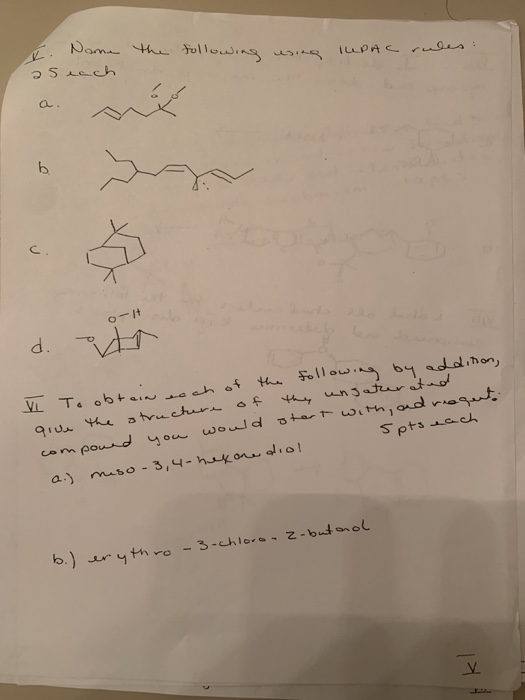 V. Name the following using IUPAC rules:
25 each
a.
b
c.
O-H
d.
VI To obtain each of the following by addition,
give the structure of the unsaturated
compound you would start with, and reagent.
5 pts each
a.) meso-3,4-hexanediol
b.) erythro-3-chloro-2-butanol
V